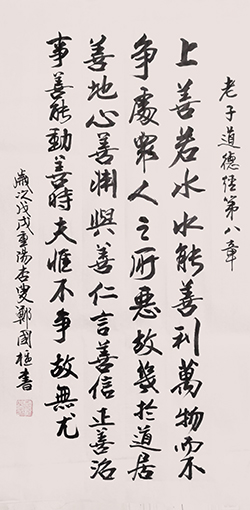 老子道德經第八章
上善若水水能善利萬物而不
爭處眾人之所惡故幾於道居
善地心善淵與善仁言善信正善治
事善能動善時夫惟不爭故無尤
歲次戊戌重陽杏叟鄭國樞書